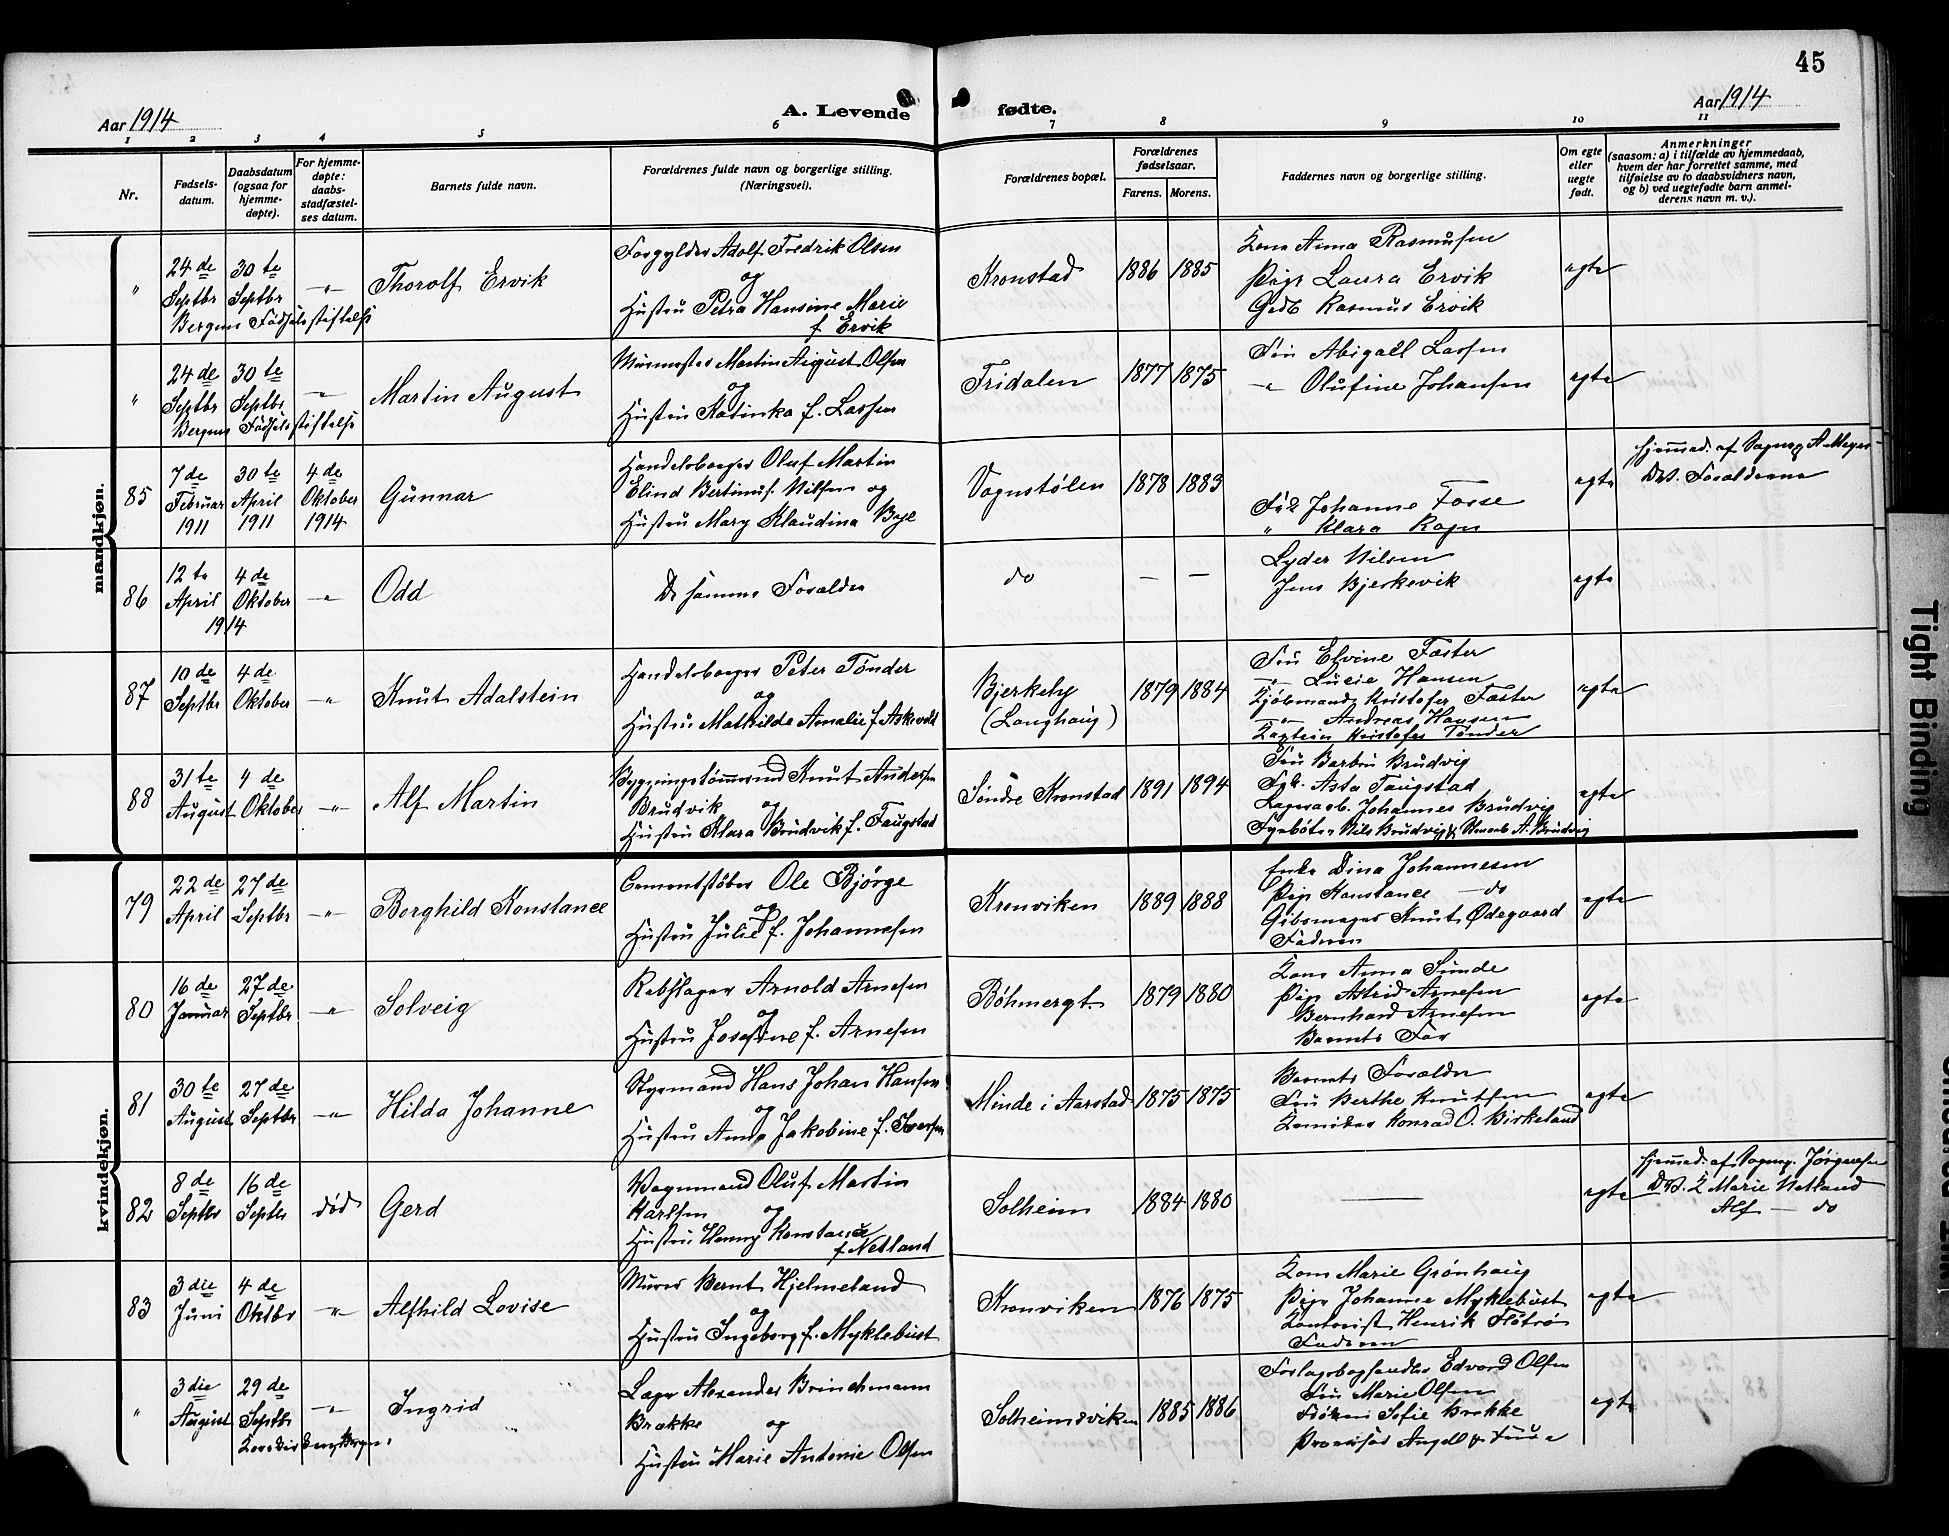 45
Aar 1914
A. Levende fødte.
Aar 1914
1 2 3 4 5 6 7 8 9 10 11
Nr.
Fødsels-
datum.
Daabsdatum
(ogsaa for
hjemme-
døpte).
For hjemme-
døpte:
daabs-
stadfæstel-
ses datum.
Barnets fulde navn.
Forældrenes fulde navn og borgerlige stilling.
(Næringsvei).
Forældrenes bopæl.
Forældrenes
fødselsaar.
Farens. Morens.
Faddernes navn og borgerlige stilling.
Om egte
eller
uegte
født.
Anmerkninger
(saasom: a) i tilfælde av hjemmedaab,
hvem der har forrettet samme, med
tilføielse av to daabsvidners navn,
og b) ved uegtefødte barn anmel-
derens navn m. v.).
mandkjøn.
" 24de Septbr 30te Septbr
Bergens Fødselsstiftelse
Thorolf Ervik
Forgylder Adolf Fredrik Olsen
og
Hustru Petra Hansine Marie
f. Ervik
Kronstad 1886 1885
Kone Anna Rasmusen
Pige Laura Ervik
Gdb Rasmus Ervik
egte
" 24de Septbr 30te Septbr
Bergens Fødselsstiftelse
Martin August
Murmester Martin August Olsen
og
Hustru Katinka f. Larsen
Fridalen 1877 1875
Fru Abigall Larsen
" Olufine Johansen
egte
85 7de Februar 1911 30te April 1911 4de Oktober 1914
Gunnar
Handelsborger Oluf Martin
Elind Bertinus Nilsen og
Hustru Mary Klaudina
Vognstølen 1878 1883
Frk Johanne Fosse
" Klara
egte
hjemmed. af Sognepr A. Meyer
D.V. Forældrene
86 12te April 4de Oktober
1914
Odd
De samme Forældre
do — —
Lyder Nilsen
Jens Bjerkevik
egte
87 10de Septbr 4de Oktober
Knut Adalstein
Handelsborger Peter Tønder
og
Hustru Mathilde Amalie f. Askevold
Bjerkely
(Langhaug)
1879 1884
Fru Elvine Fæster
" Lucie Hansen
Kjøbmand Kristofer Fæster
" Andreas Hansen
Kaptein Kristofer Tønder
egte
88 31te August 4de Oktober
Alf Martin
Bygningstømmermd Knut Andersen
Brudvik og
Hustru Klara Brudvik f. Taugstad
Søndre Kronstad 1891 1894
Fru Barbru Brudvig
Frk. Asta Taugstad
Lagerarb. Johannes Brudvig
Fyrbøter Nils Brudvig A. Brudvig
egte
kvindekjøn.
79 22de April 27de Septbr
Borghild Konstance
Cementstøber Ole Bjørge
og
Hustru Julie f. Johannesen
Kronviken 1889 1888
Enke Dina Johannesen
Pige Konstance — do
Gibsmager Knut Ødegaard
Faderen
egte
80 16de Januar 27de Septbr
Solveig
Rebslager Arnold Arnesen
og
Hustru Josefine f. Arnesen
Bøhmergt. 1879 1880
Kone Anna Sunde
Pige Astrid Arnesen
Bernhard Arnesen
Barnets Far
egte
81 30te August 27de Septbr
Hilda Johanne
Styrmand Hans Johan Hansen
og
Hustru Anna Jakobine f. Iversen
Minde i Aarstad 1875 1875
Barnets Forældre
Fru Berthe Knutsen
Kemiker Konrad O. Birkeland
egte
82 8de Septbr 16de Septbr død
Gerd
Vognmand Oluf Martin
Karlsen og
Hustru Henny Konstance
f. Netland
Solheim 1884 1880
egte
hjemmed. af Sognepr. Jørgensen
D.V. K Marie Netland
Alf — do
83 3die Juni 4de Oktbr
Alfhild Lovise
Murer Bernt Hjelmeland
og
Hustru Ingeborg f. Myklebust
Kronviken 1876 1875
Kone Marie Grønhaug
Pige Johanne Myklebust
Kontorist Henrik Flotrø
Faderen
egte
" 3die August 29de Septbr
Ingrid
Lager Alexander Brinchmann
Brække og
Hustru Marie Antonie Olsen
Solheimsviken 1885 1886
Forlagsboghandler Edvard Olsen
Fru Marie Olsen
Frøken Sofie Brække
egte
Tight Binding